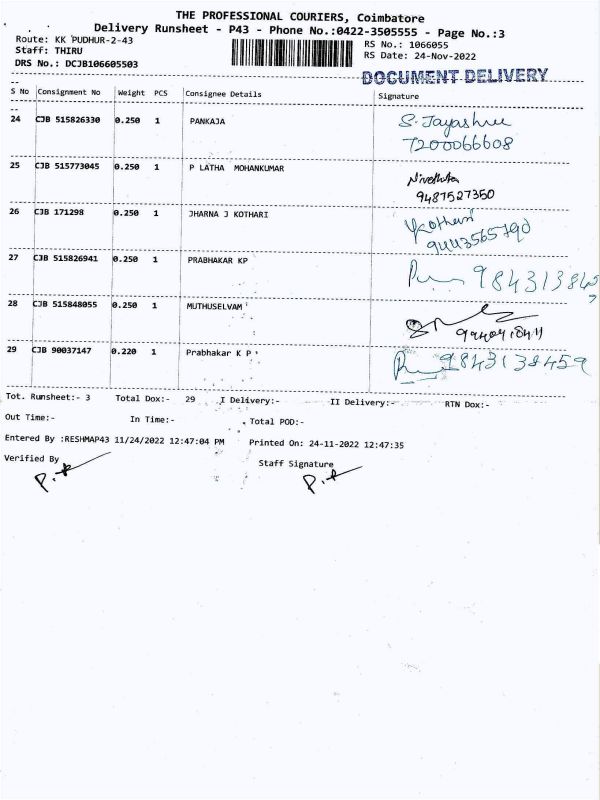 THE PROFESSIONAL COURIERS, Coimbatore
Delivery Runsheet - P43 - Phone No.:0422-3505555 - Page No.:3
Route: KK PUDHUR-2-43
RS No.: 1066055
Staff: THIRU
RS Date: 24-Nov-2022
DRS No.: DCJB106605503
DOCUMENT DELIVERY
S No Consignment No Weight PCS Consignee Details Signature
24 CJB 515826330 0.250 1 PANKAJA S. Jayashree
7200066608
25 CJB 515773045 0.250 1 P LATHA MOHANKUMAR Nivethita
9487527350
26 CJB 171298 0.250 1 JHARNA J KOTHARI Kothari
9443565790
27 CJB 515826941 0.250 1 PRABHAKAR KP
28 CJB 515848055 0.250 1 MUTHUSELVAM
29 CJB 90037147 0.220 1 Prabhakar K P 9843138459
Tot. Runsheet:- 3 Total Dox:- 29 I Delivery:- II Delivery:- RTN Dox:-
Out Time:- In Time:- Total POD:-
Entered By :RESHMAP43 11/24/2022 12:47:04 PM Printed On: 24-11-2022 12:47:35
Verified By Staff Signature